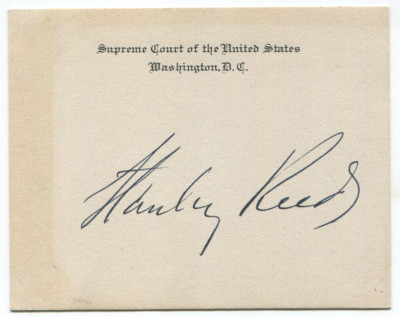 Supreme Court of the United States
Washington, D. C.
Stanley Reed